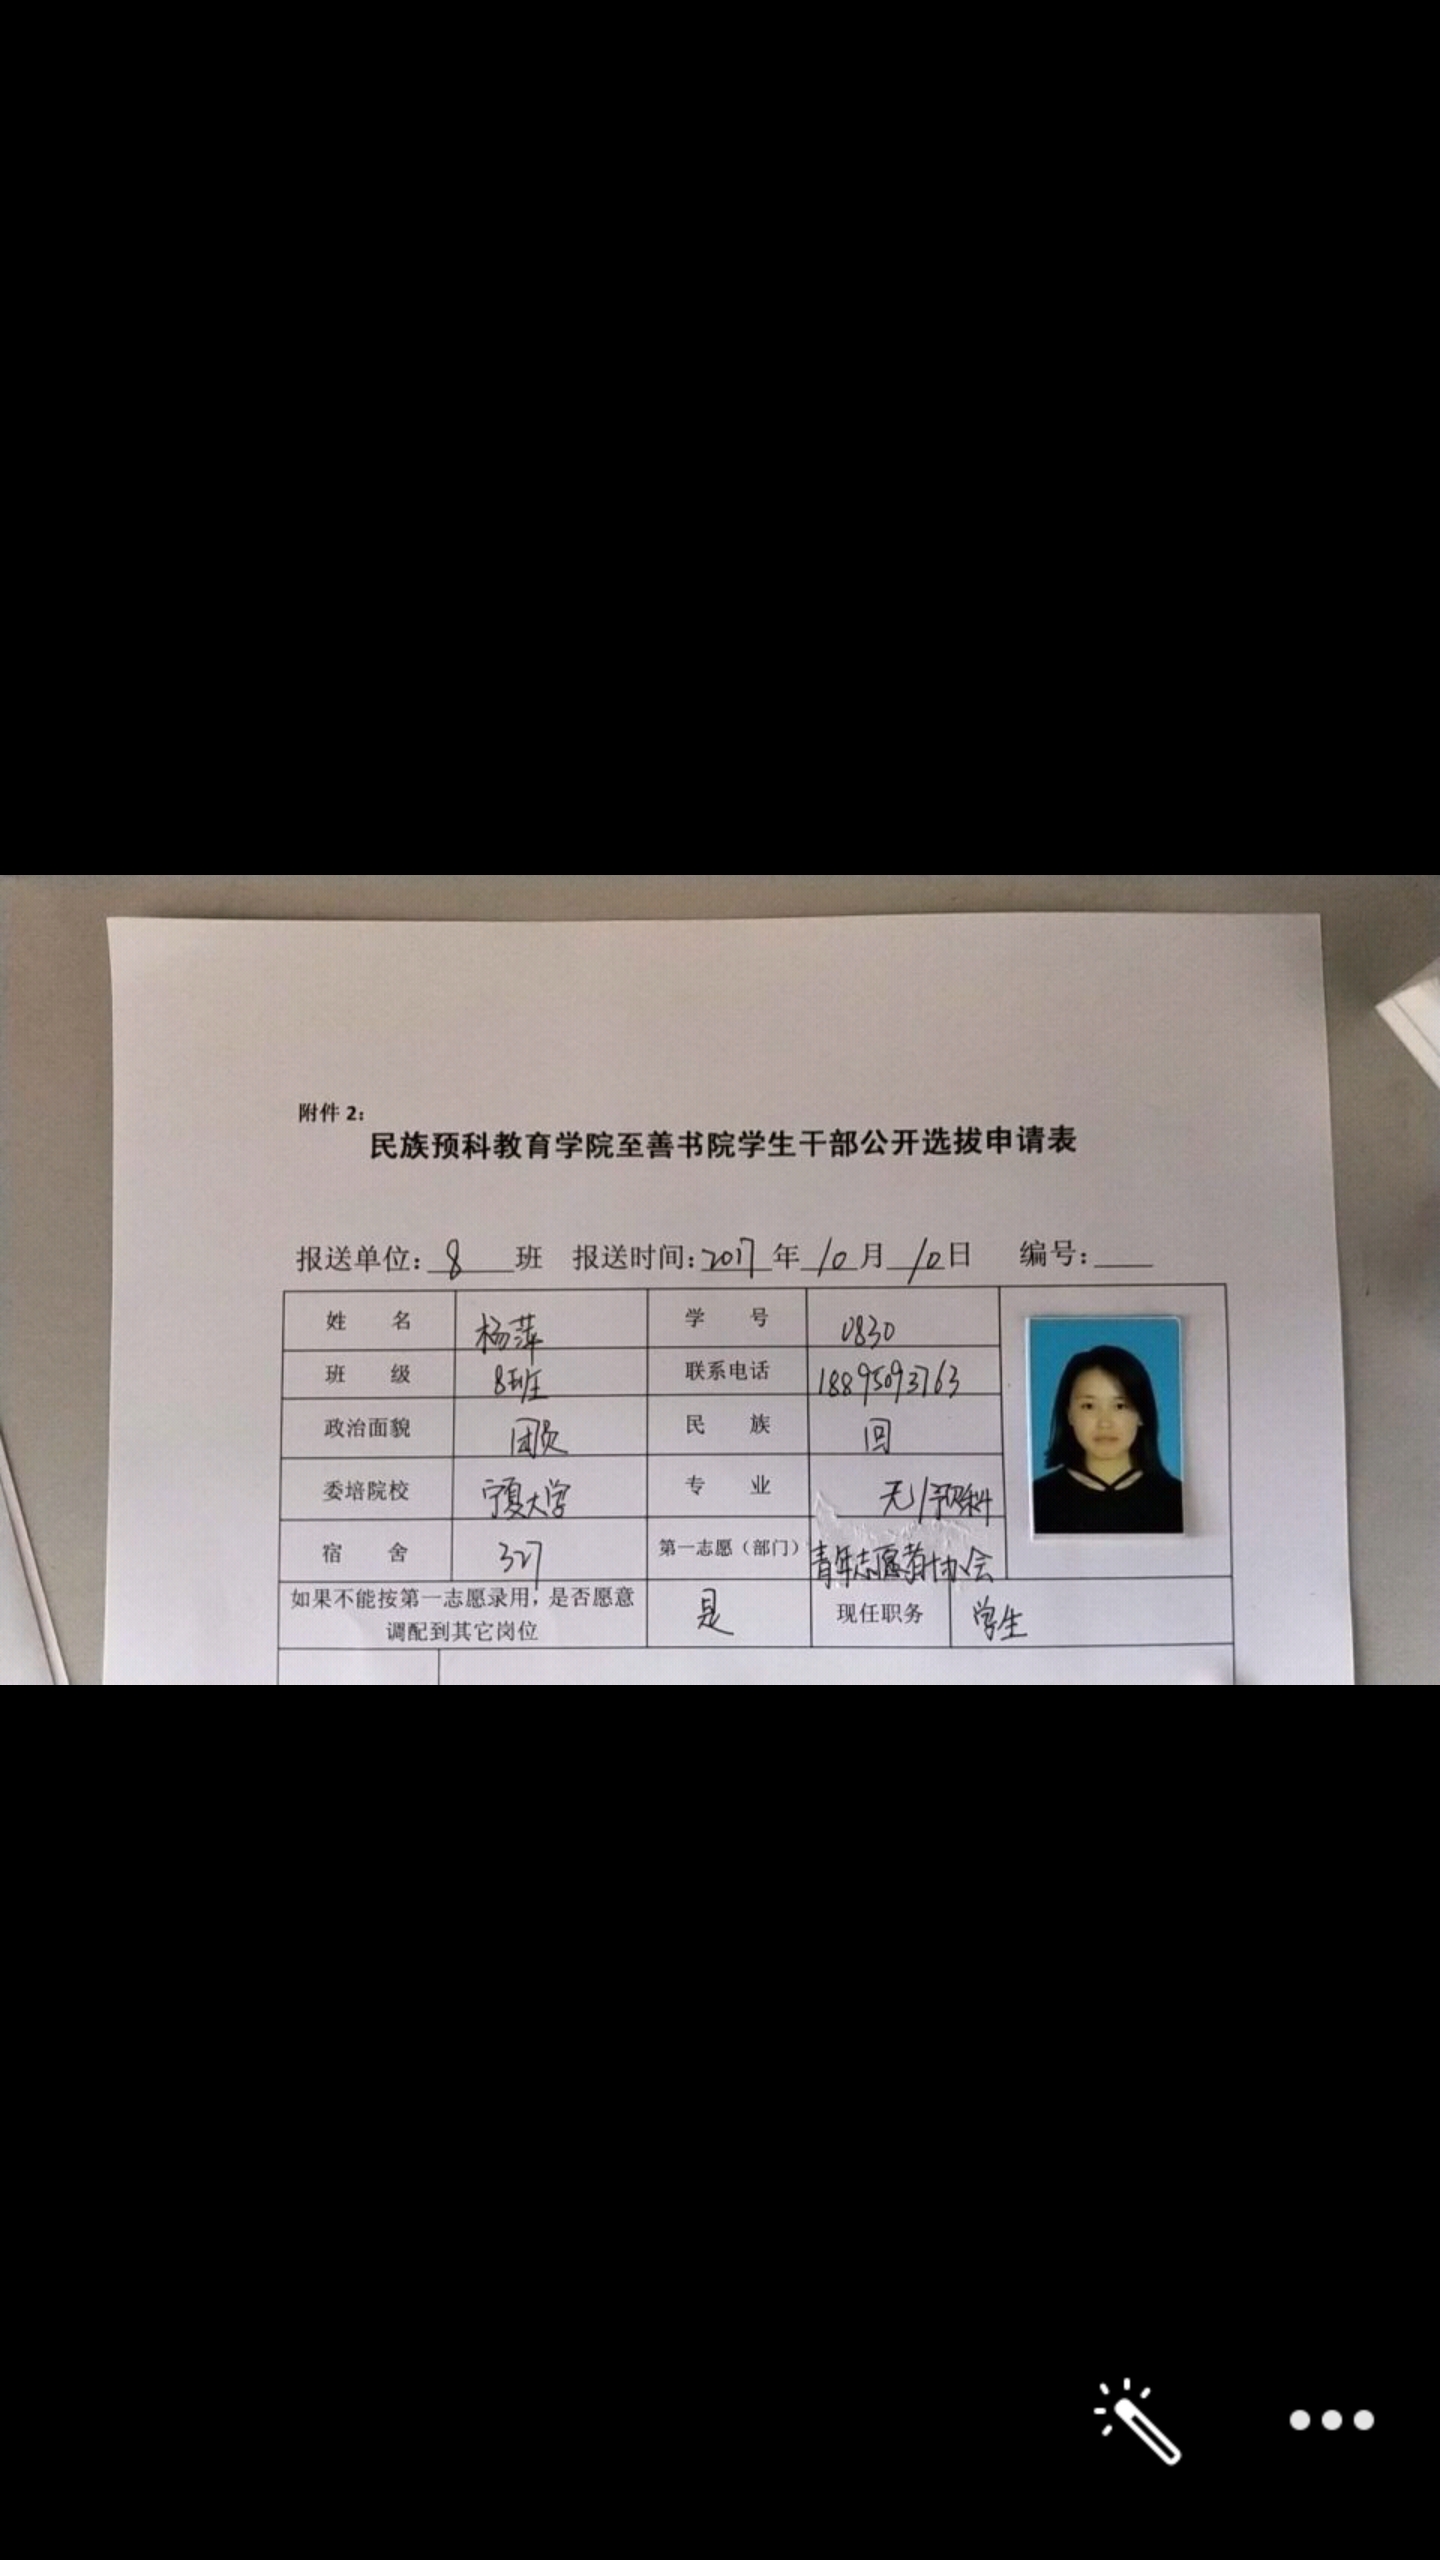 附件 2：
民族预科教育学院至善书院学生干部公开选拔申请表
报送单位：8 班 报送时间：2017 年 10 月 10 日 编号：
姓 名 杨萍 学 号 0830
班 级 8班 联系电话 18895093763
政治面貌 团员 民 族 回
委培院校 宁夏大学 专 业 无/预科
宿 舍 327 第一志愿（部门） 青年志愿者协会
如果不能按第一志愿录用，是否愿意
调配到其它岗位 是 现任职务 学生